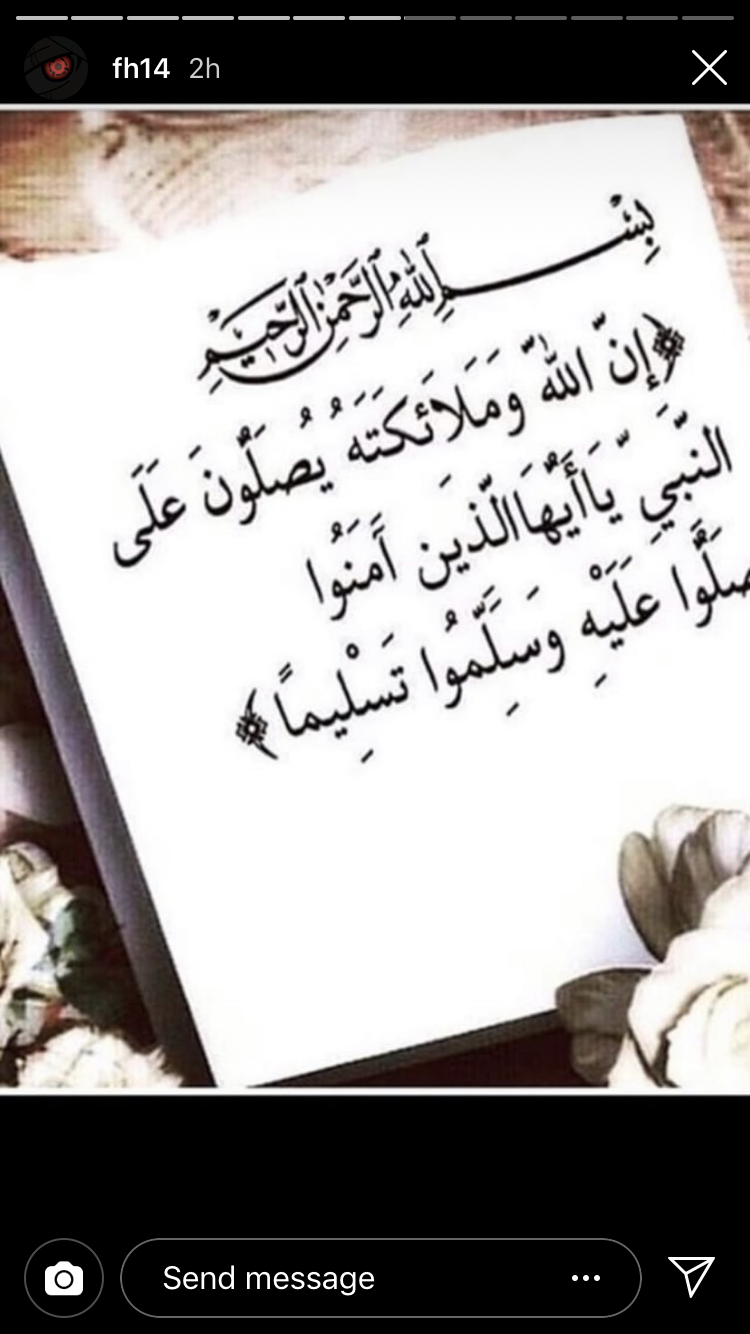 fh14 2h
بِسْمِ ٱللَّهِ ٱلرَّحْمَٰنِ ٱلرَّحِيمِ
﴿إِنَّ اللهَ وَمَلَائكَتَهُ يُصَلُّونَ عَلَى
النَّبِيِ يَاأَيُّهَا الَّذِينَ آَمَنُوا
صَلُّوا عَلَيْهِ وَسَلِّمُوا تَسْلِيمًا﴾
Send message